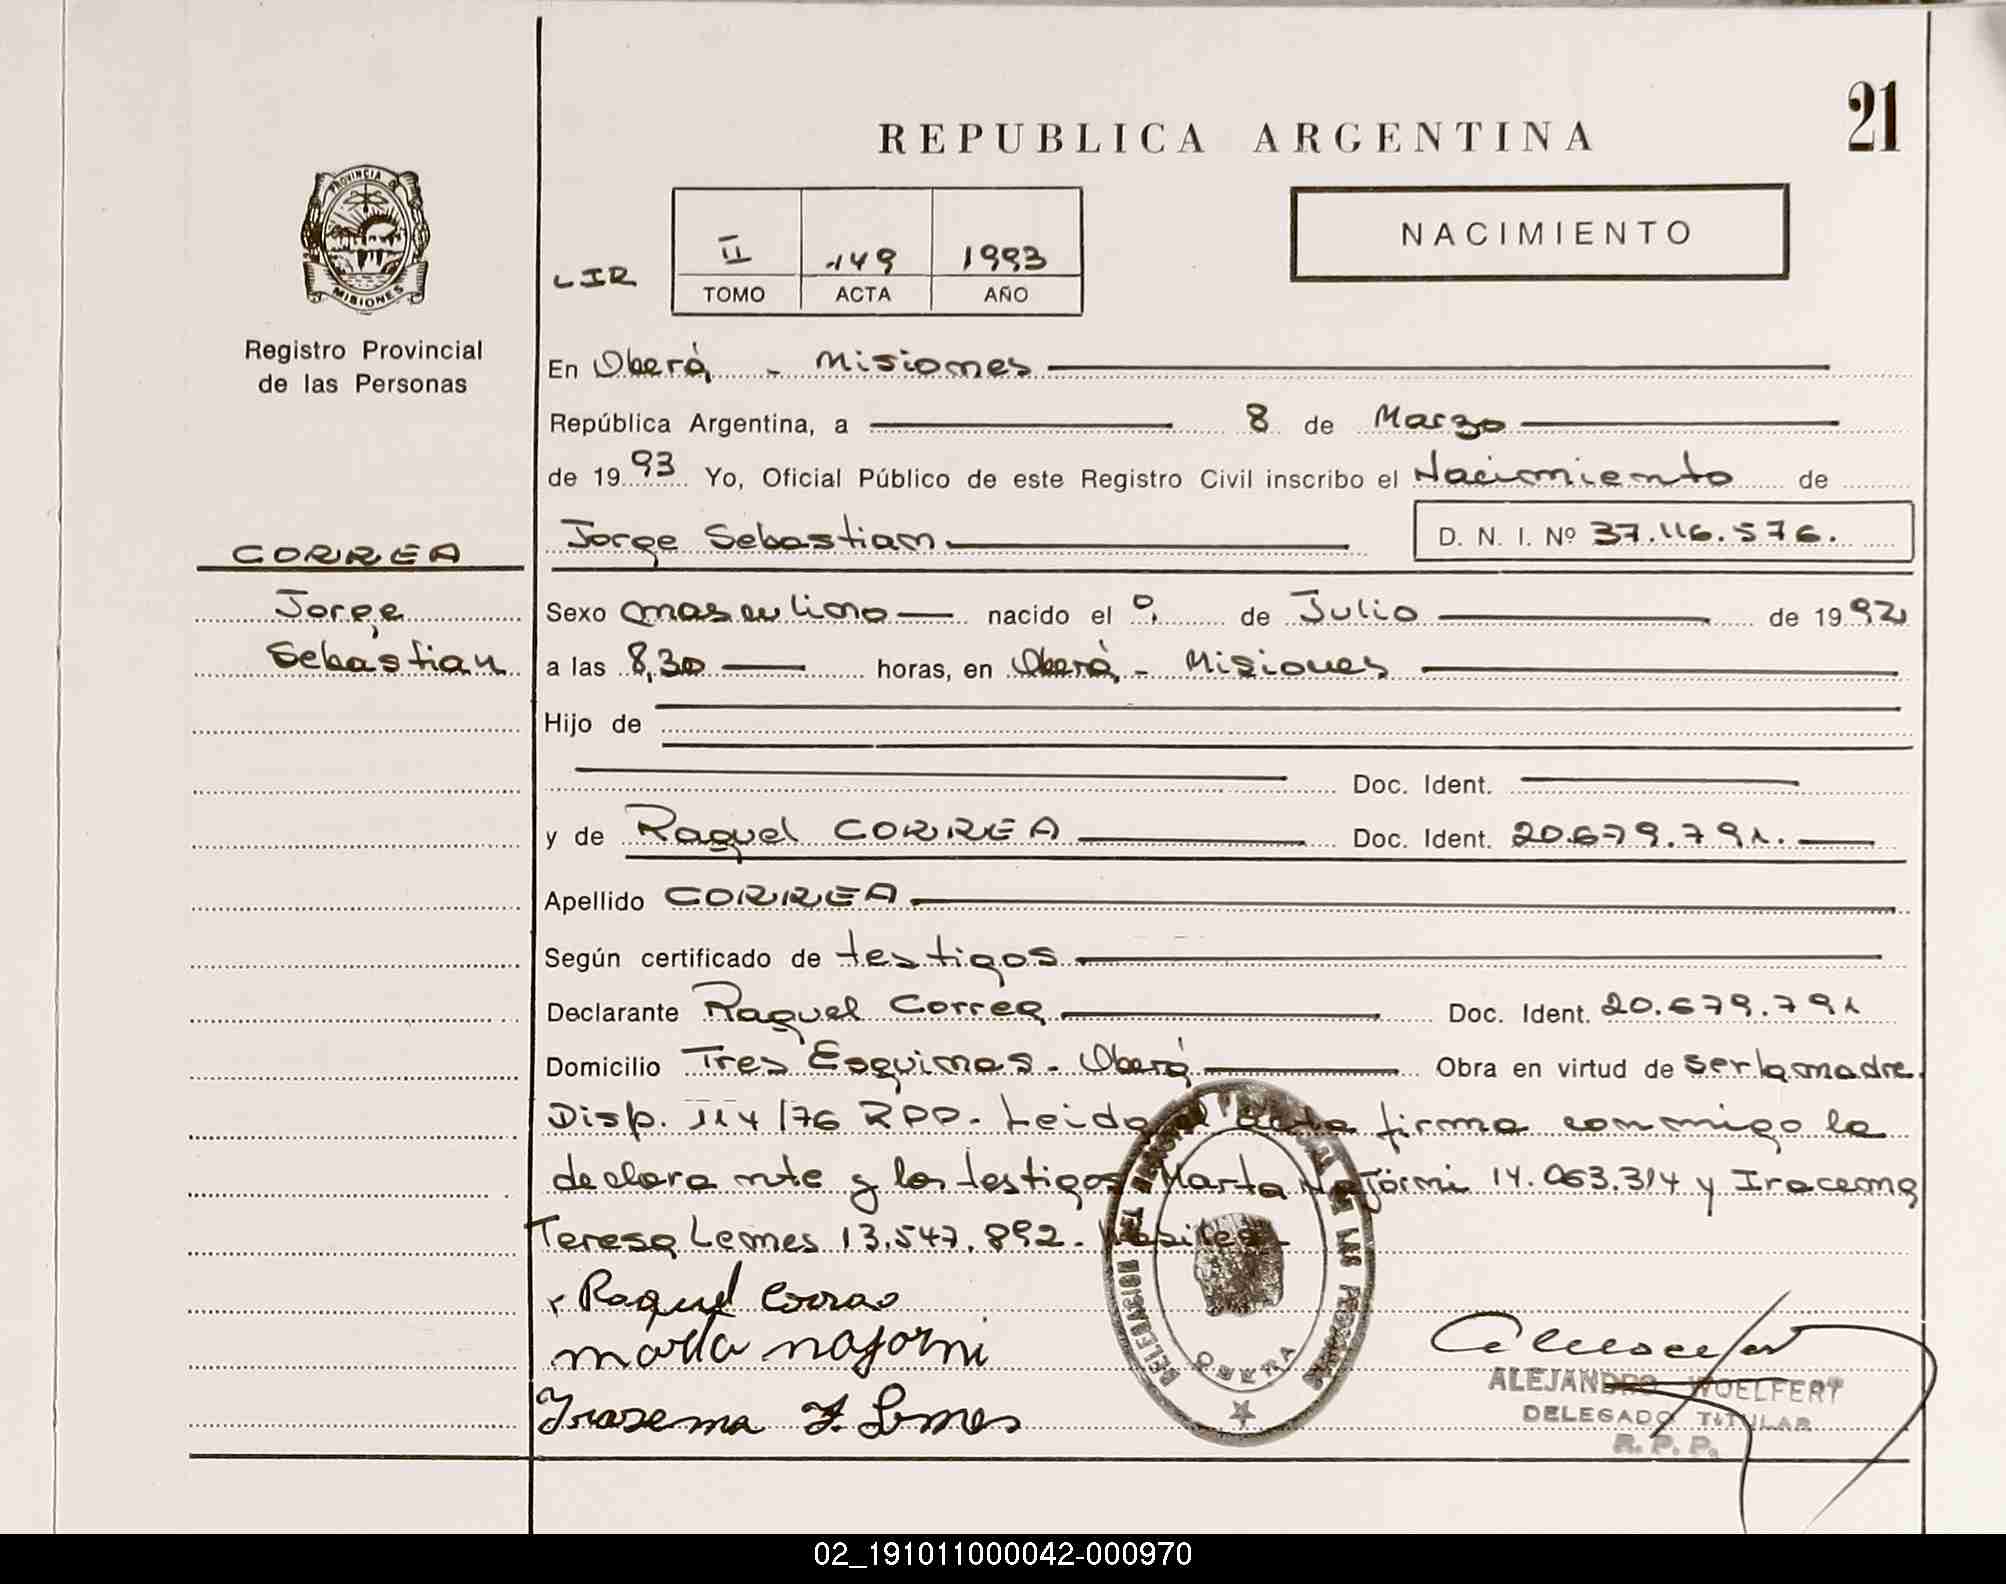 21
REPUBLICA ARGENTINA
PROVINCIA DE
MISIONES
Registro Provincial
de las Personas
NACIMIENTO
LIR
II 149 1993
TOMO ACTA AÑO
En Oberá - Misiones
República Argentina, a 8 de Marzo
de 1993 Yo, Oficial Público de este Registro Civil inscribo el Nacimiento de
Jorge Sebastian D. N. I. Nº 37.116.576.
CORREA
Jorge
Sebastian
Sexo masculino nacido el de Julio de 1992
a las 8,30 horas, en Oberá - Misiones
Hijo de
Doc. Ident.
y de Raquel CORREA Doc. Ident. 20.679.791.
Apellido CORREA
Según certificado de testigos
Declarante Raquel Correa Doc. Ident. 20.679.791
Domicilio Tres Esquinas - Oberá Obra en virtud de ser la madre.
Disp. 114/76 RPP. Leida el acta firma conmigo la
declarante y los testigos Marta Najorni 14.063.314 y Iracema
Teresa Lemes 13.547.892.
Raquel Correa
marta najorni
Irasema T. Lemes
DELEGACION REGISTRO PROVINCIAL DE LAS PERSONAS
OBERA
ALEJANDRO WOELFERT
DELEGADO TITULAR
R. P. P.
02_191011000042-000970